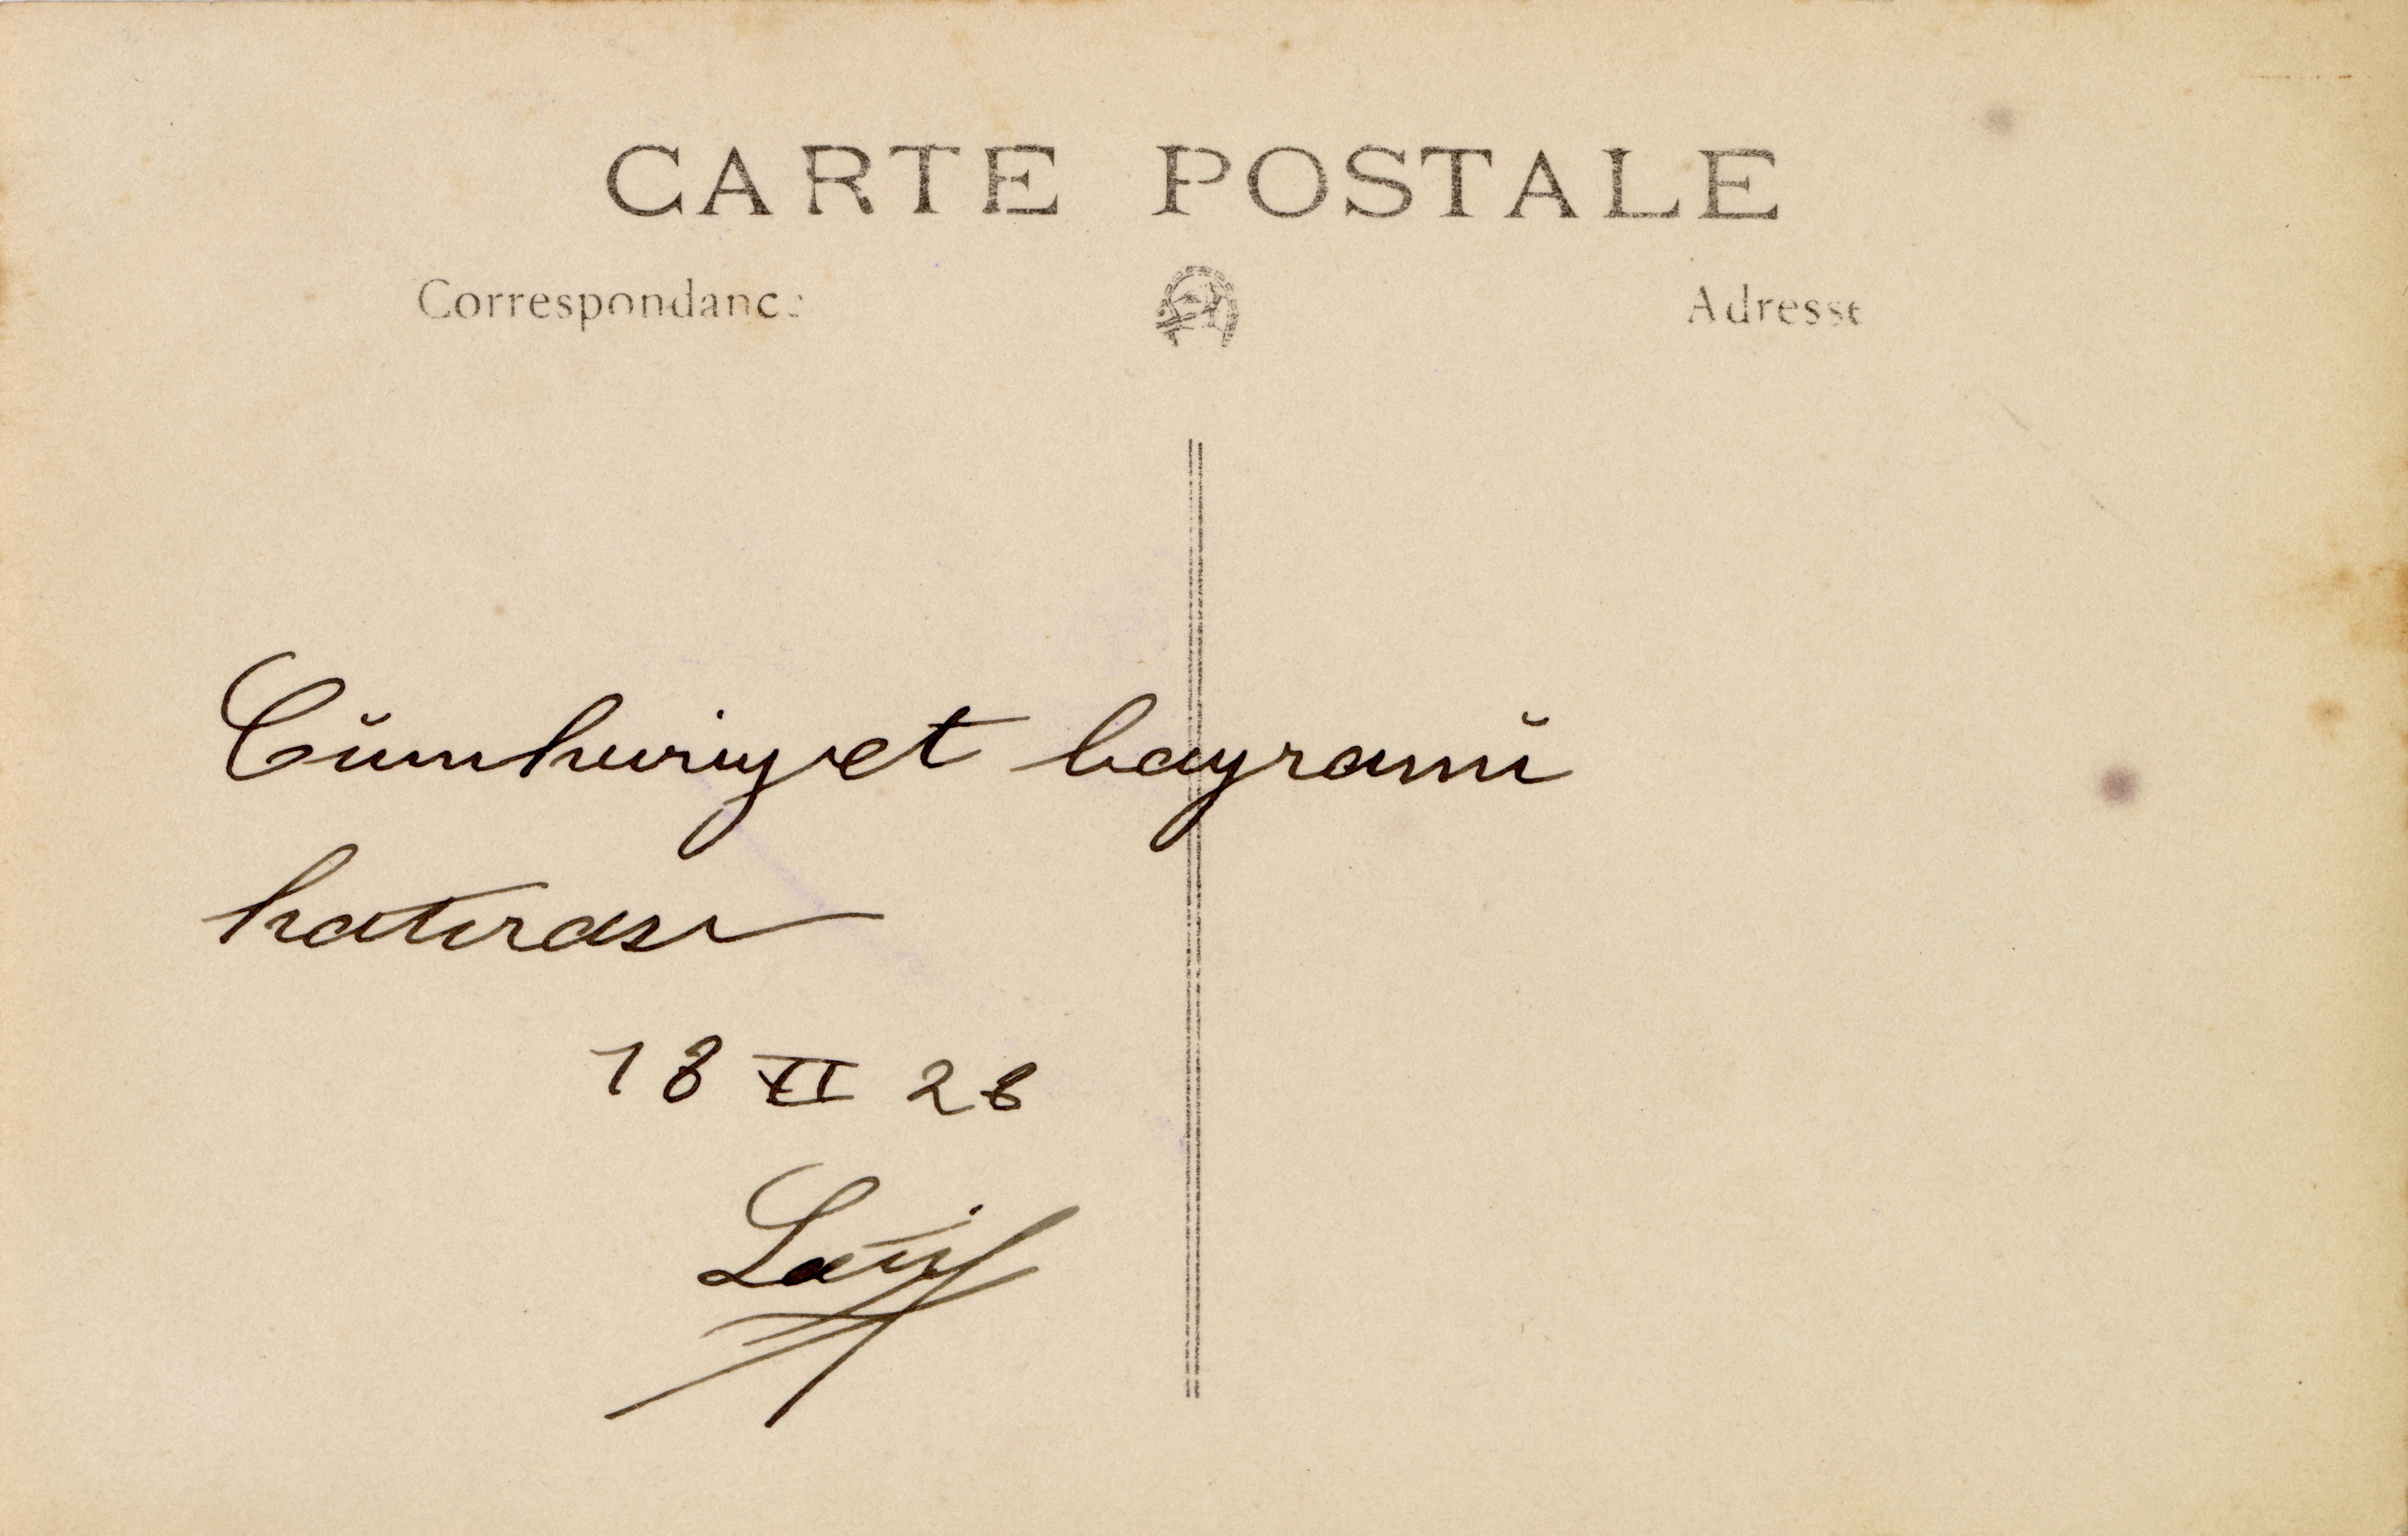 CARTE POSTALE
Correspondance Adresse
Cümhuriyet bayramü
hatırası
18 XI 28
Latif